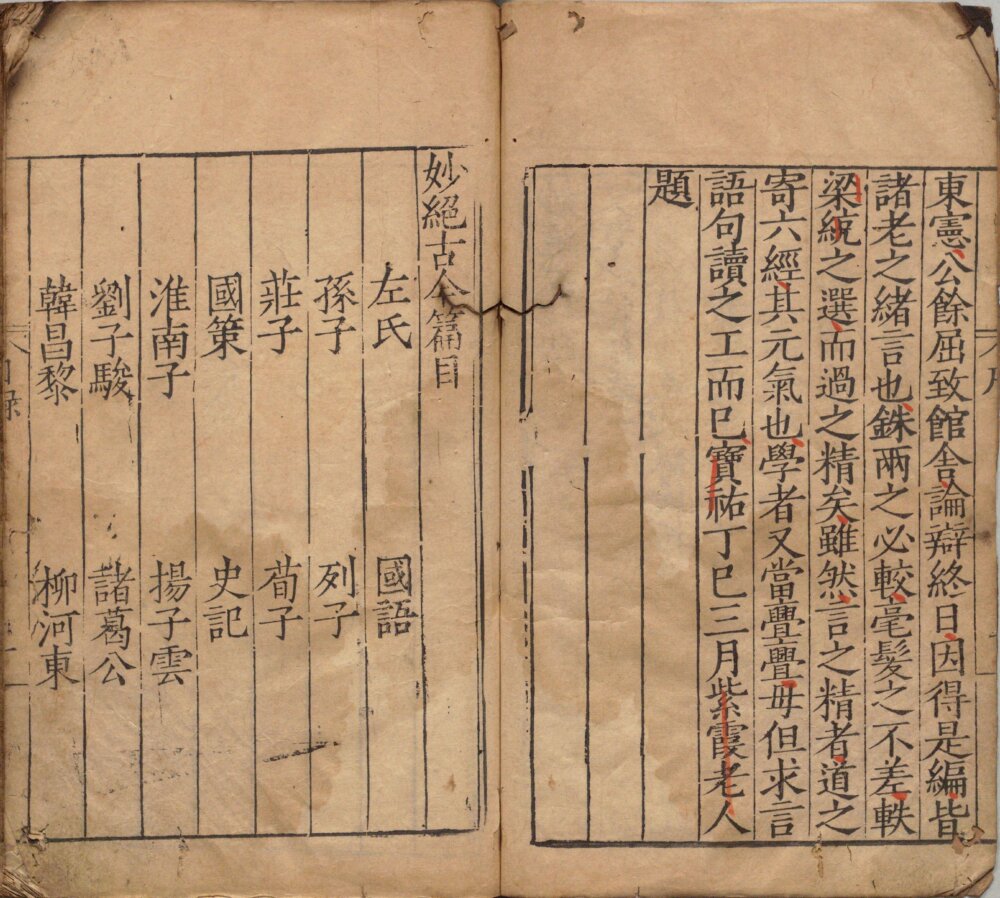 東憲公餘屈致館舍論辯終日因得是編皆
諸老之緒言也銖兩之必較毫髮之不差軼
梁統之選而過之精矣雖然言之精者道之
寄六經其元氣也學者又當亹亹毋但求言
語句讀之工而已寶祐丁巳三月紫霞老人
題
妙絕古今篇目
左氏 國語
孫子 列子
莊子 荀子
國策 史記
淮南子 揚子雲
劉子駿 諸葛公
韓昌黎 柳河東